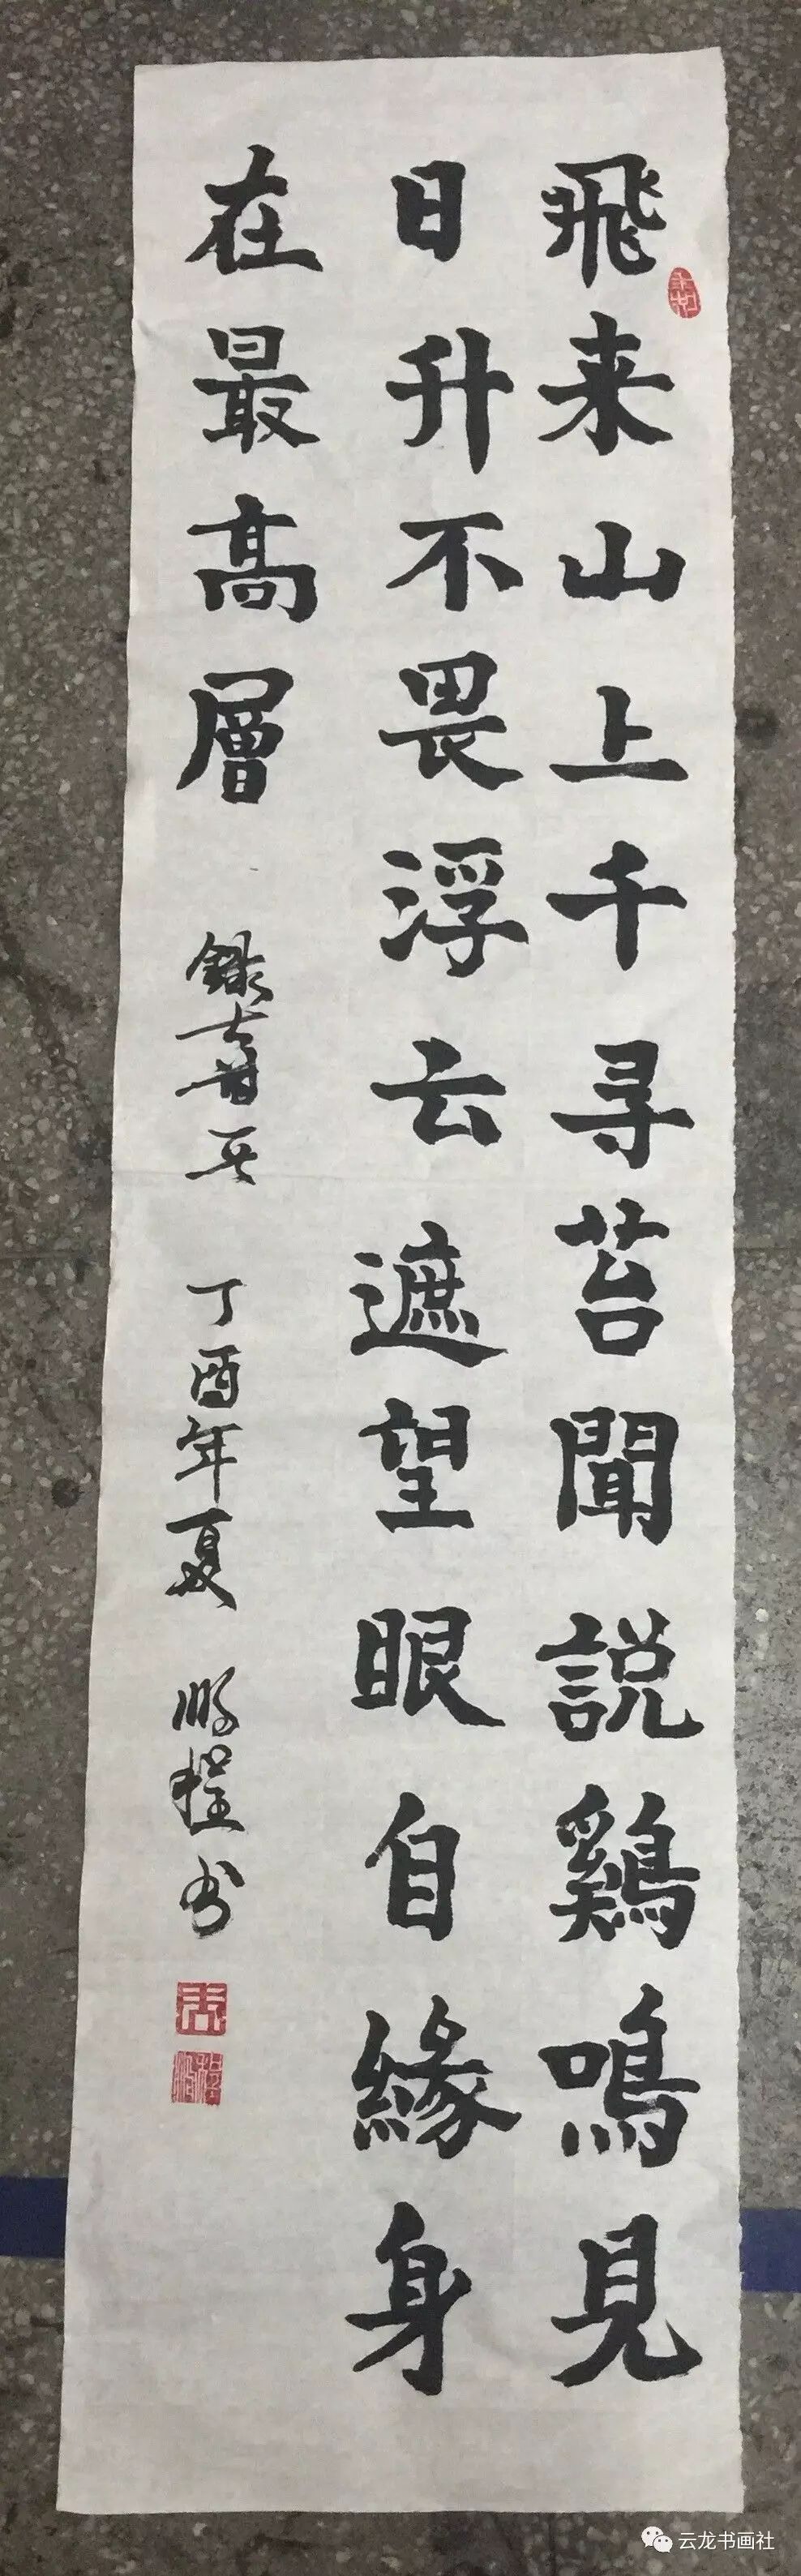 飛来山上千寻苔聞説鷄鳴見
日升不畏浮云遮望眼自緣身
在最髙層
丁酉年夏 鹏程书
云龙书画社